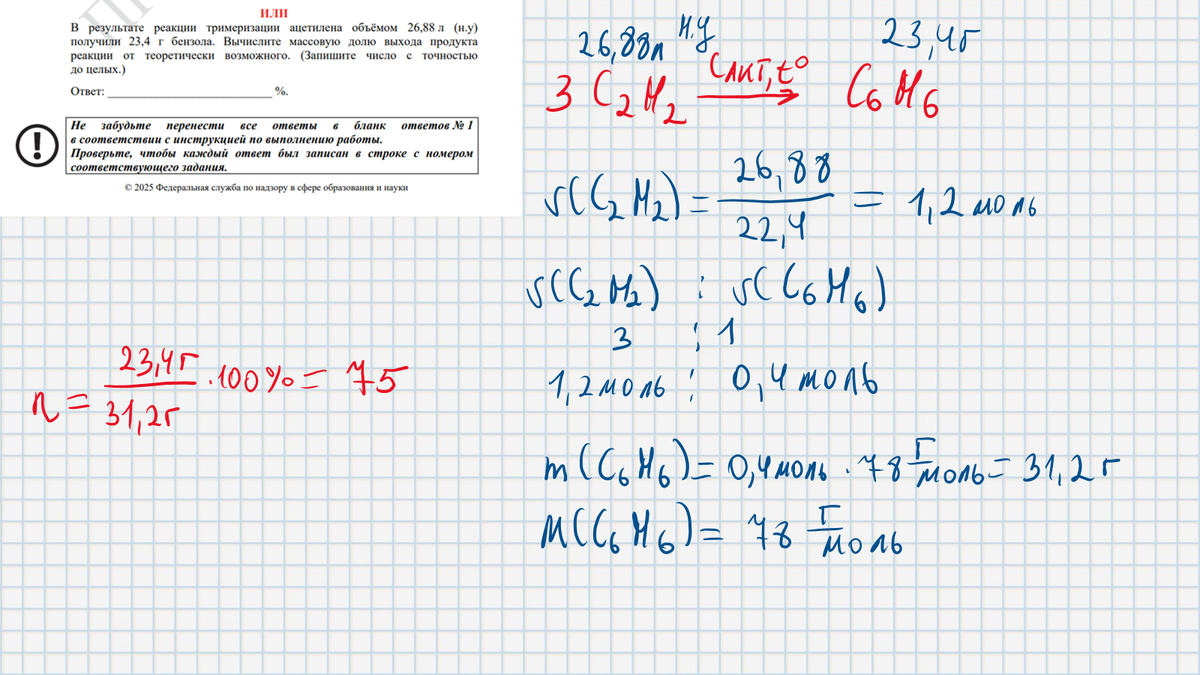 ИЛИ
В результате реакции тримеризации ацетилена объёмом 26,88 л (н.у)
получили 23,4 г бензола. Вычислите массовую долю выхода продукта
реакции от теоретически возможного. (Запишите число с точностью
до целых.)
Ответ: ____________________________ %.
!
Не забудьте перенести все ответы в бланк ответов № 1
в соответствии с инструкцией по выполнению работы.
Проверьте, чтобы каждый ответ был записан в строке с номером
соответствующего задания.
© 2025 Федеральная служба по надзору в сфере образования и науки
26,88л н.у 23,4г
3 C₂H₂ Cакт, t° → C₆H₆
ν(C₂H₂) = 26,88 / 22,4 = 1,2 моль
ν(C₂H₂) : ν(C₆H₆)
3 : 1
1,2 моль : 0,4 моль
m(C₆H₆) = 0,4 моль · 78 г/моль = 31,2 г
M(C₆H₆) = 78 г/моль
η = 23,4г / 31,2г · 100% = 75